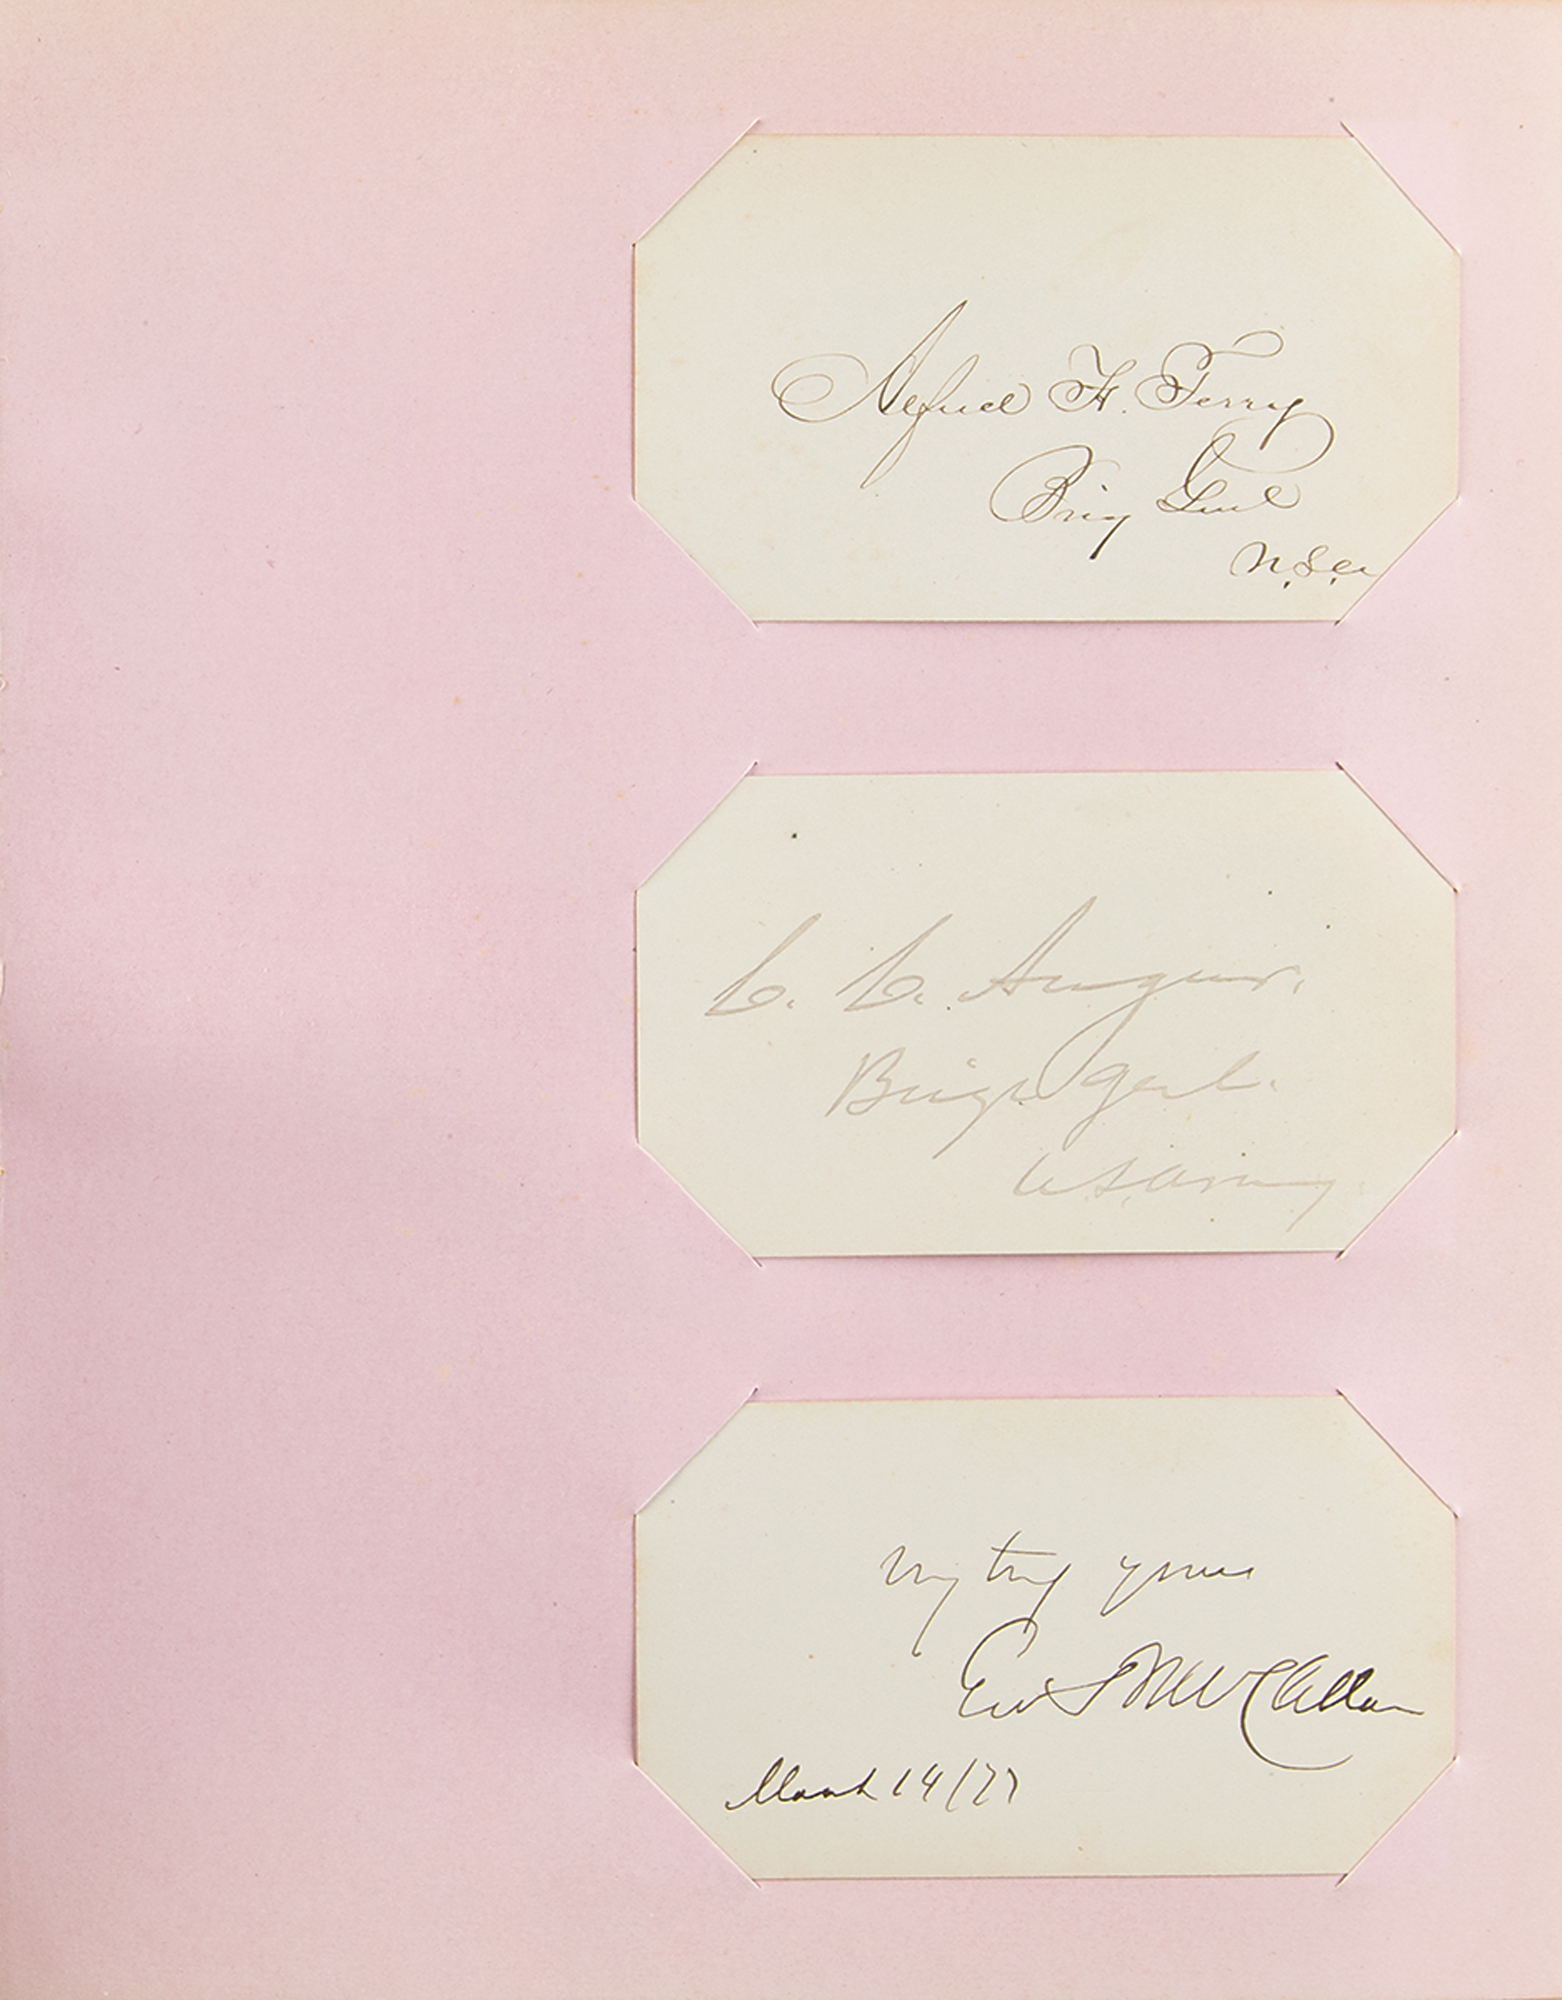 Alfred H. Terry
Brig Genl
U.S.A
C. C. Augur.
Brig. Genl.
U.S. Army
Very truly yours
Geo B McClellan
March 14/77